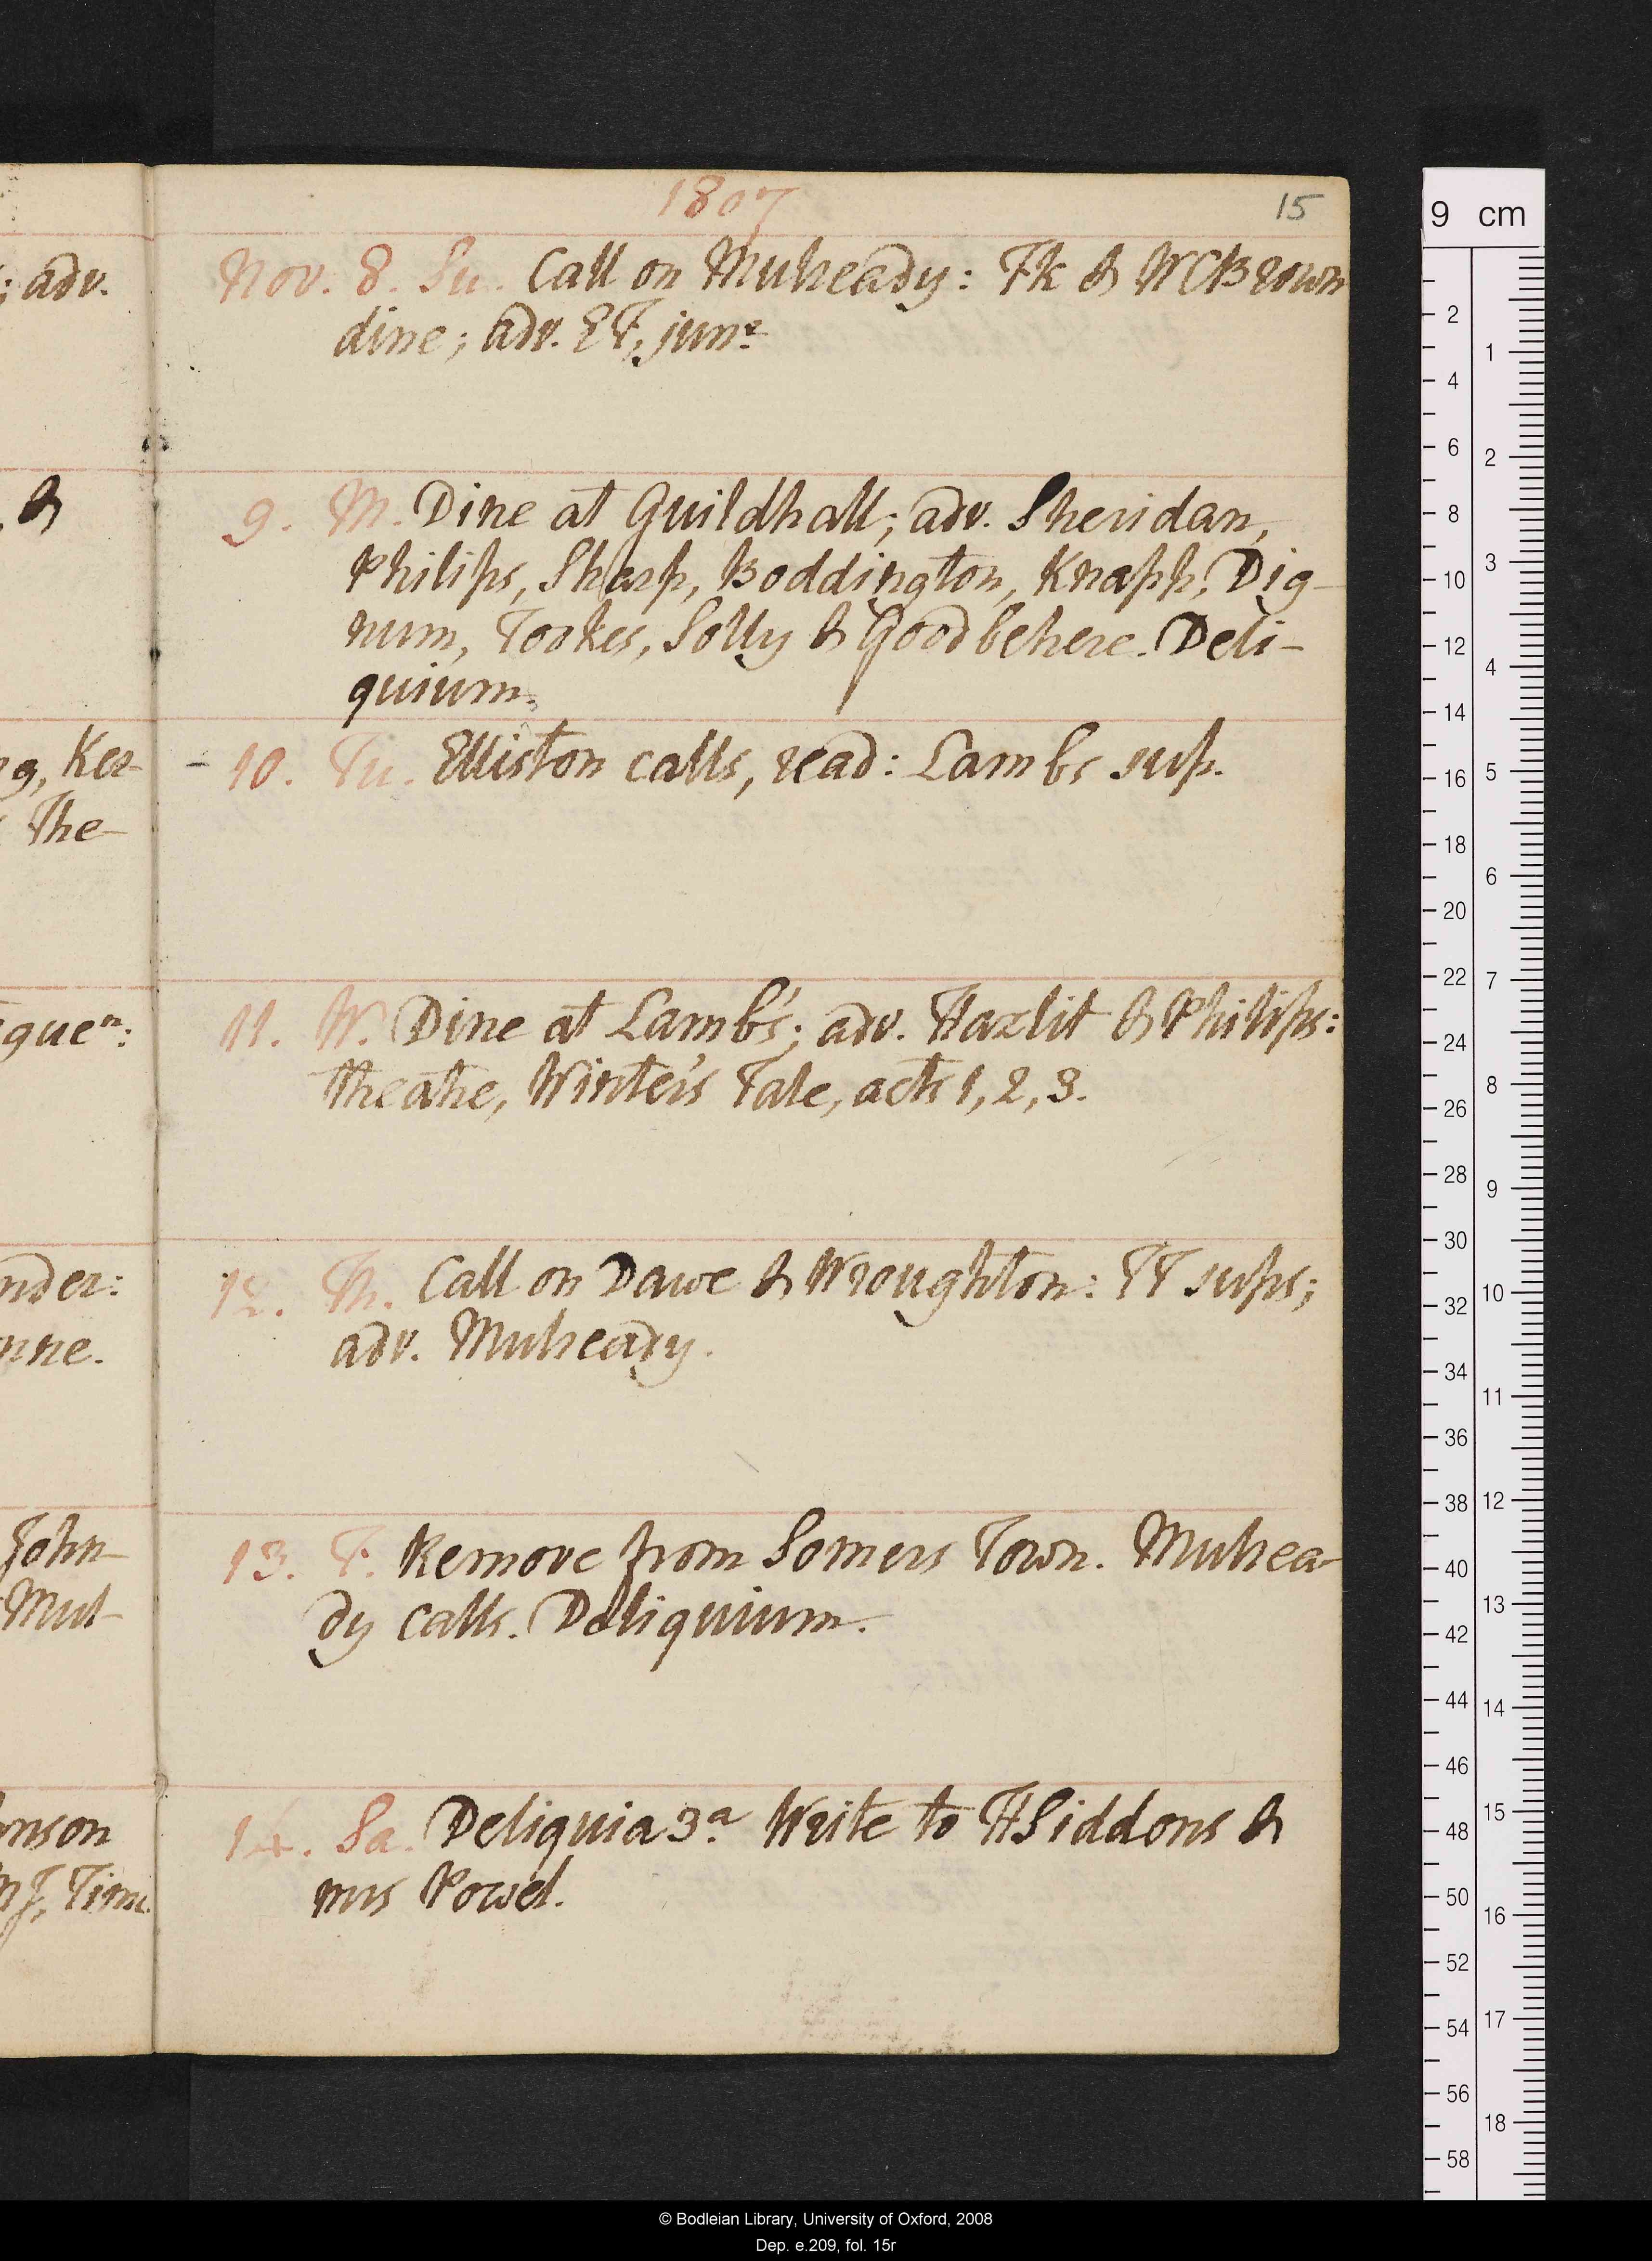 1807
15
Nov. 8. Su. Call on Mulready: Fk & WCBrown
dine; adv. EF, junr
9. M. Dine at Guildhall; adv. Sheridan,
Philips, Sharp, Boddington, Knapp, Dig-
num, Tookes, Solly & Goodbehere. Deli-
quium.
10. Tu. Elliston calls, read: Lambs sup.
11. W. Dine at Lamb's; adv. Hazlit & Philips:
theatre, Winter's Tale, acts 1, 2, 3.
12. Th. Call on Dawe & Wroughton: TT sups;
adv. Mulready.
13. F. Remove from Somers Town. Mulrea-
dy calls. Deliquium.
14. Sa. Deliquia 3a. Write to HSiddons &
mrs Powel.
; adv.
&
g, Ker-
The-
guen:
nder:
nne.
John-
Mul-
nson
MJ, Time.
9 cm
2
4
6
8
10
12
14
16
18
20
22
24
26
28
30
32
34
36
38
40
42
44
46
48
50
52
54
56
58
1
2
3
4
5
6
7
8
9
10
11
12
13
14
15
16
17
18
© Bodleian Library, University of Oxford, 2008
Dep. e.209, fol. 15r